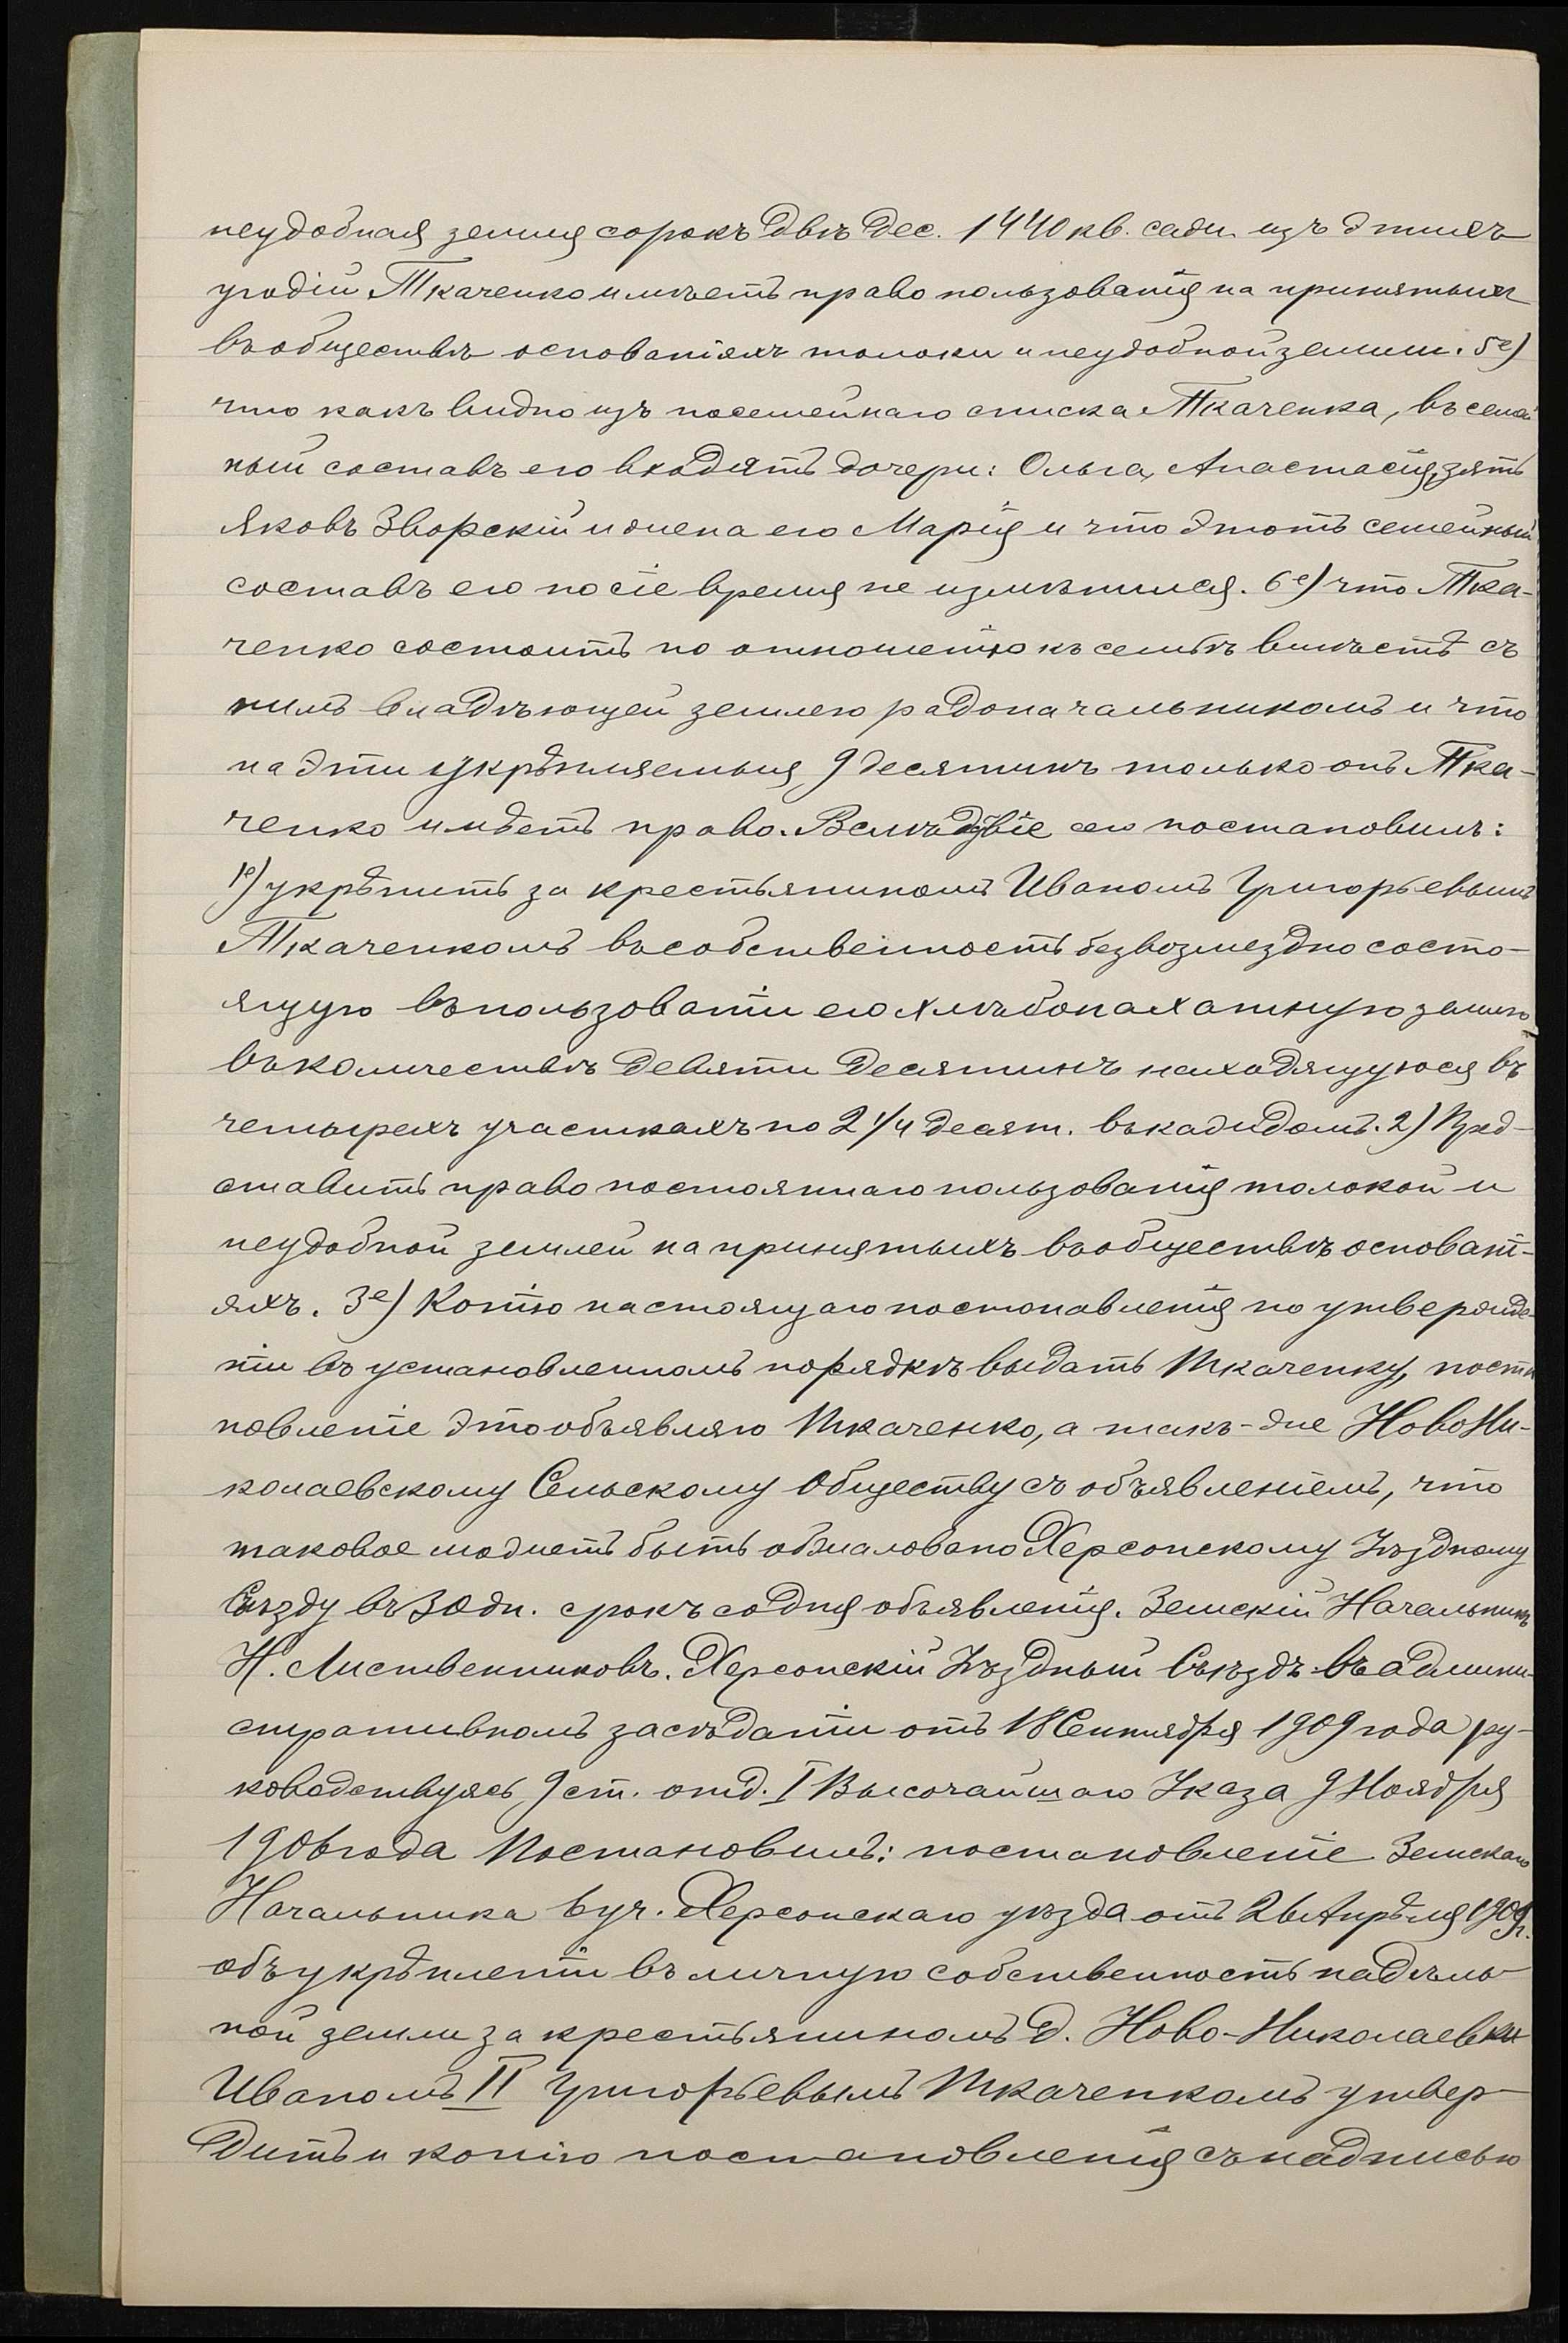 неудобная земля сорокъ двѣ дес. 1440 кв. саж. изъ этихъ
угодій Ткаченко имѣетъ право пользованія на принятыхъ
въ обществѣ основаніяхъ толоки и неудобной земли. 5е)
что какъ видно изъ посемейнаго списка Ткаченка, въ семей
ный составъ его входятъ дочери: Ольга, Анастасія, зять
Яковъ Зворскій и жена его Марія и что этотъ семейный
составъ его по сіе время не измѣнился. 6е) что Тка-
ченко состоитъ по отношенію къ семьѣ вмѣстѣ съ
нимъ владѣющей землею радоначальникомъ и что
на эти укрѣпляемыя 9 десятинъ только онъ Тка-
ченко имѣетъ право. Вслѣдствіе сего постановилъ:
1е) укрѣпить за крестьяниномъ Иваномъ Григорьевымъ
Ткаченкомъ въ собственность безвозмездно состо-
ящую въ пользованіи его хлѣбопахатную землю
въ количествѣ девяти десятинъ находящуюся въ
четырехъ участкахъ по 2 1/4 десят. въ каждомъ. 2) Пред-
ставить право постояннаго пользованія толокой и
неудобной землей на принятыхъ въ обществѣ основані-
яхъ. 3е) Копію настоящаго постоновленія по утвержде-
ніи въ установленномъ порядкѣ выдать Ткаченку, поста
новленіе это объявляю Ткаченко, а такъ-же НовоНи-
колаевскому Сельскому Обществу съ объявленіемъ, что
таковое можетъ быть обжаловано Херсонскому Уѣздному
Съѣзду въ 30 дн. срокъ со дня объявленія. Земскій Начальникъ
Н. Лиственниковъ. Херсонскій Уѣздный Съѣздъ въ админи-
стративномъ засѣданіи отъ 18 Сентября 1909 года ру-
ководствуясь 9 ст. отд. I Высочайшаго Указа 9 Ноября
1906 года Постановилъ: постановленіе Земскаго
Начальника 6 уч. Херсонскаго уѣзда отъ 26 Апрѣля 1909г.
объ укрѣпленіи въ личную собственность надѣль-
ной земли за крестьяниномъ д. Ново-Николаевки
Иваномъ II Григорьевымъ Ткаченкомъ утвер-
дить и копію постановленія съ надписью